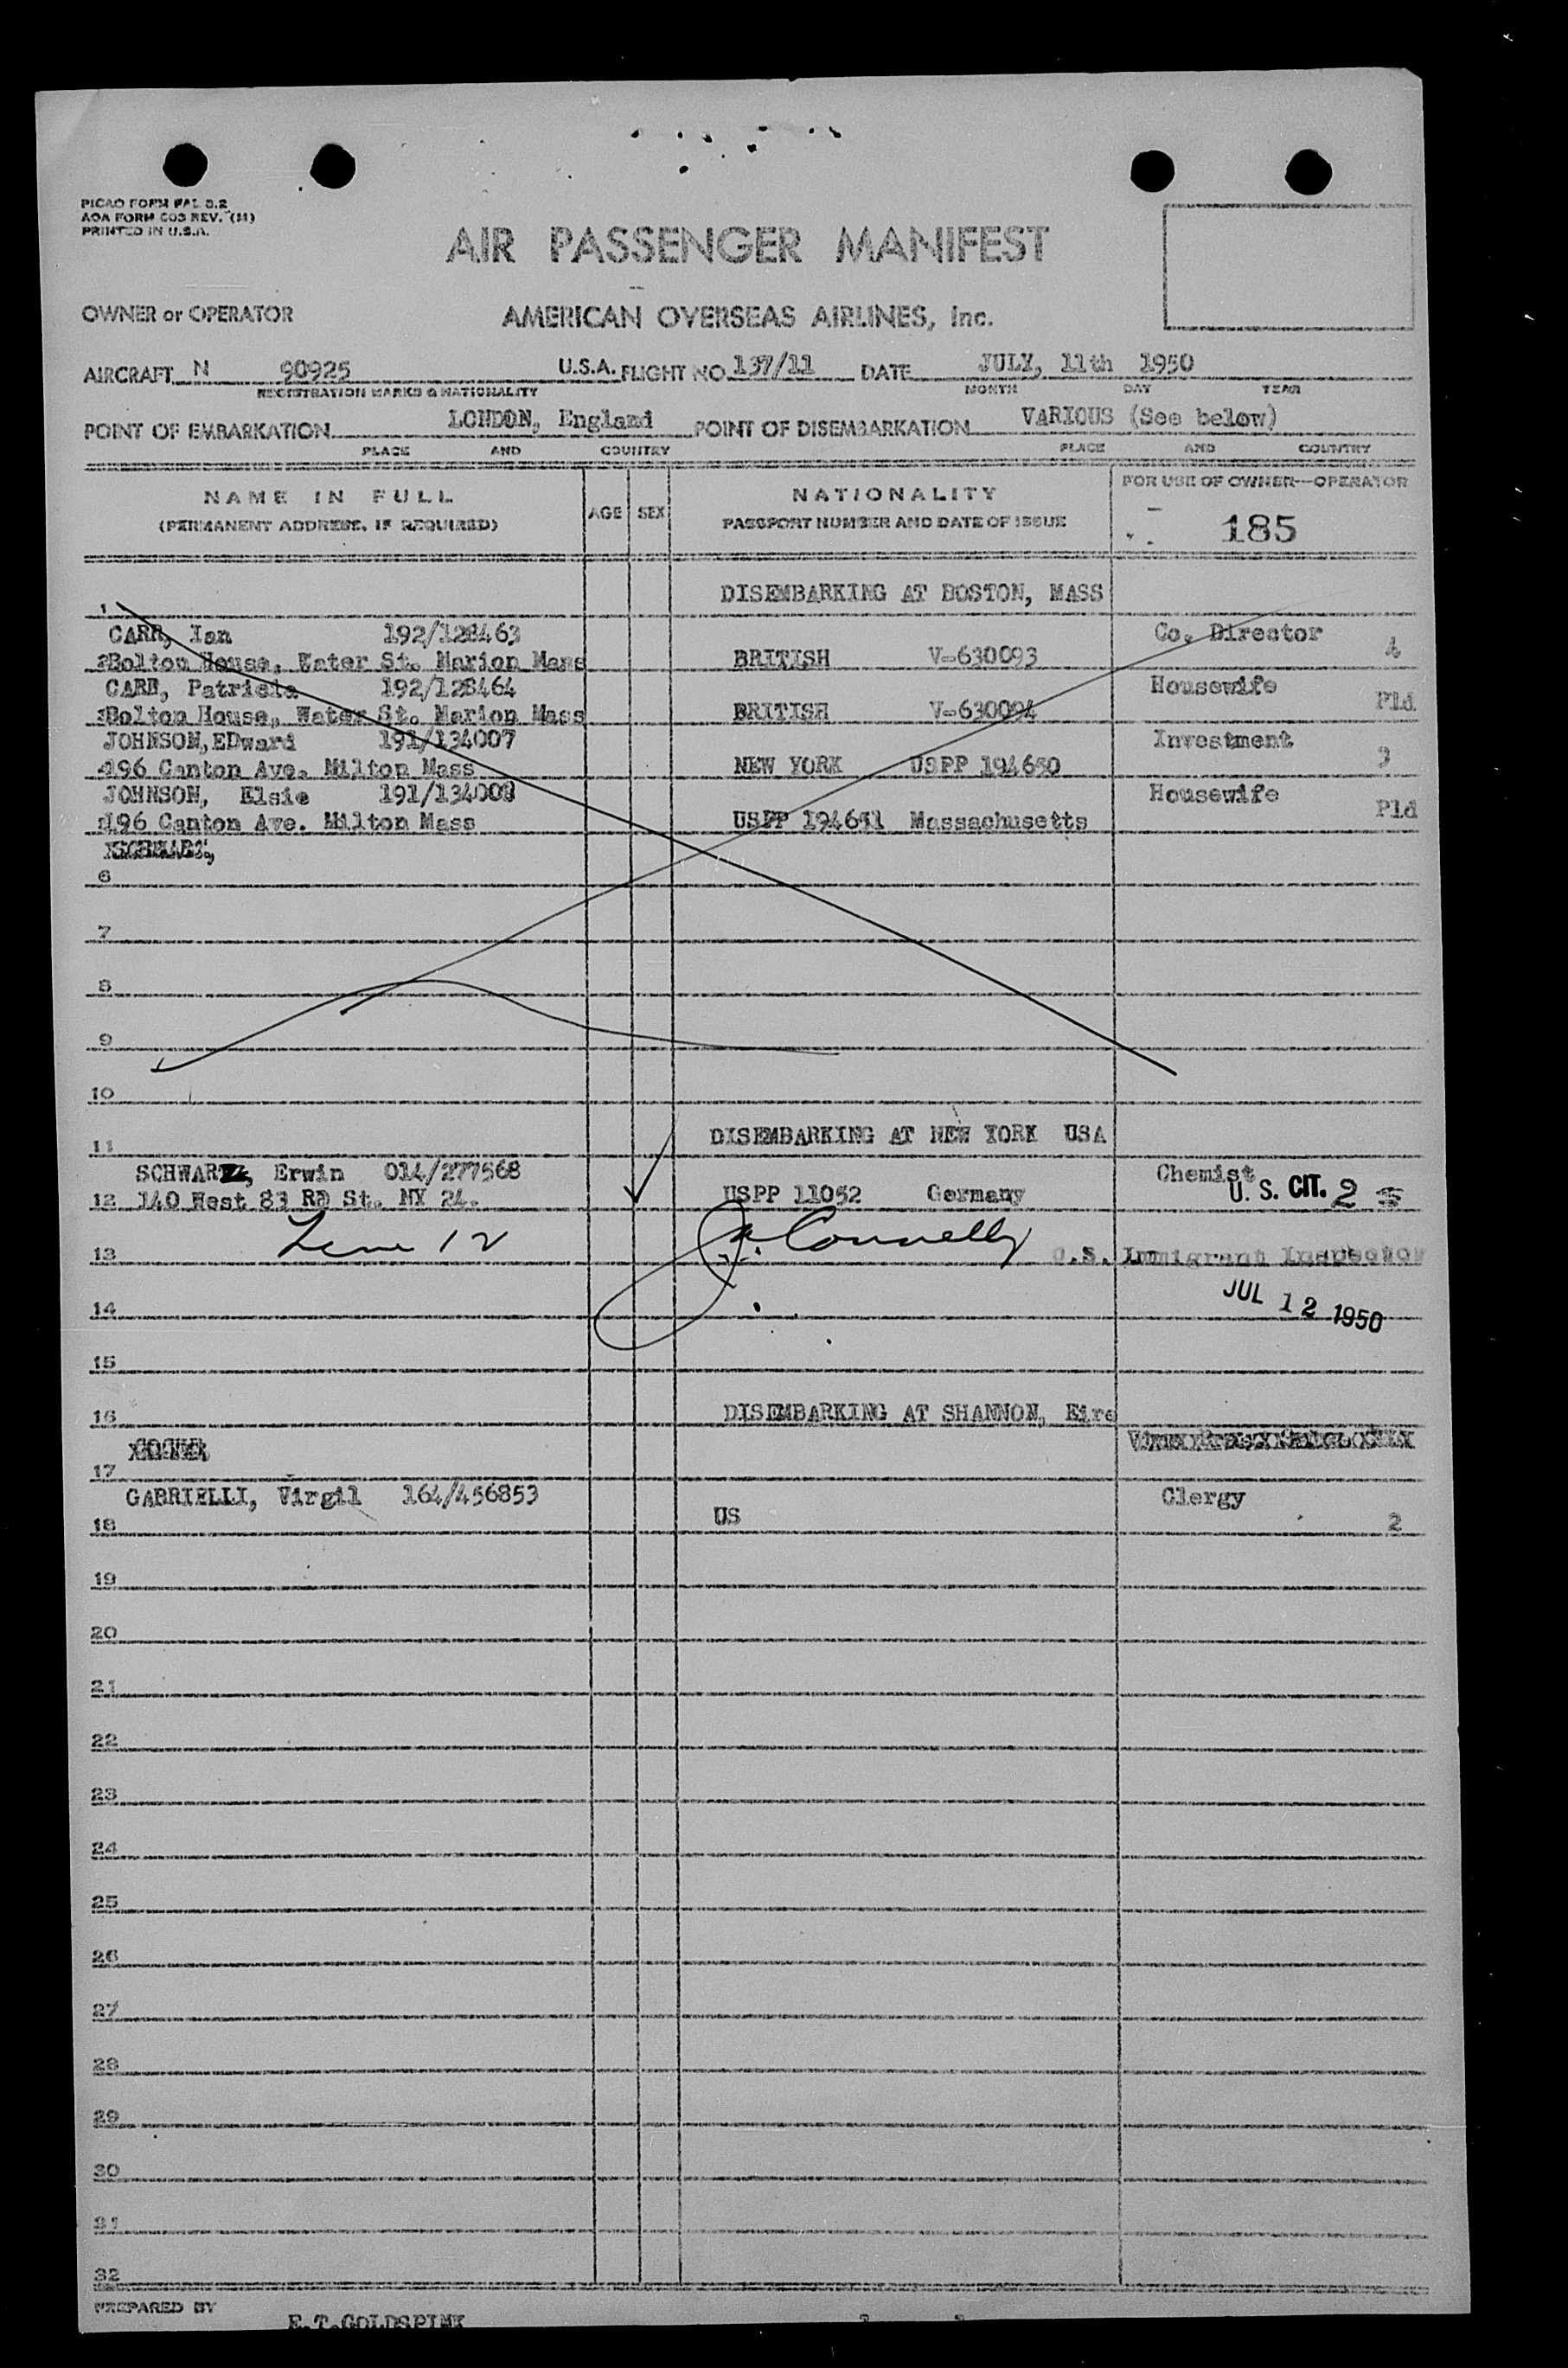 PICAO FORM FAL 3.2
AOA FORM 603 REV. (M)
PRINTED IN U.S.A.
AIR PASSENGER MANIFEST
OWNER or OPERATOR AMERICAN OVERSEAS AIRLINES, Inc.
AIRCRAFT N 90925 U.S.A. FLIGHT NO 137/11 DATE JULY, 11th 1950
REGISTRATION MARKS & NATIONALITY MONTH DAY YEAR
POINT OF EMBARKATION LONDON, England POINT OF DISEMBARKATION VARIOUS (See below)
PLACE AND COUNTRY PLACE AND COUNTRY
NAME IN FULL AGE SEX NATIONALITY FOR USE OF OWNER—OPERATOR
(PERMANENT ADDRESS, IF REQUIRED) PASSPORT NUMBER AND DATE OF ISSUE 185
DISEMBARKING AT BOSTON, MASS
1
CARR, Ian 192/128463 Co. Director
2 Bolton House, Water St. Marion Mass BRITISH V-630093 4
CARR, Patricia 192/128464 Housewife
3 Bolton House, Water St. Marion Mass BRITISH V-630094 Pld
JOHNSON, EDward 191/134007 Investment
4 196 Canton Ave. Milton Mass NEW YORK USPP 194650 3
JOHNSON, Elsie 191/134008 Housewife
5 196 Canton Ave. Milton Mass USPP 194651 Massachusetts Pld
6
7
8
9
10
DISEMBARKING AT NEW YORK USA
11
SCHWARTZ, Erwin 014/277568 Chemist
12 140 West 83 RD St. NY 24. USPP 11052 Germany U. S. CIT. 2
Line 12 Connelly
13 U.S. Immigrant Inspector
JUL 12 1950
14
15
16 DISEMBARKING AT SHANNON, Eire
17
GABRIELLI, Virgil 164/456853 Clergy
18 US 2
19
20
21
22
23
24
25
26
27
28
29
30
31
32
PREPARED BY E.T.GOLDSPINK